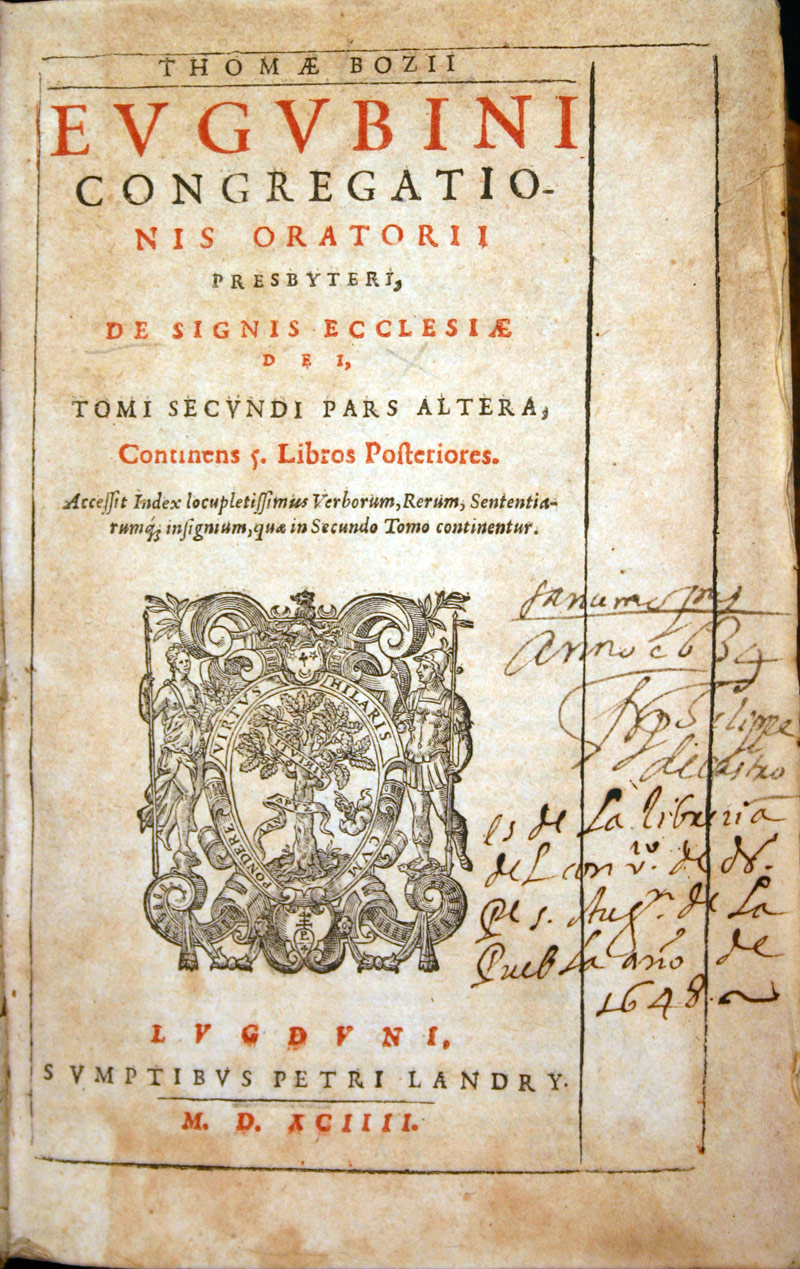 THOMÆ BOZII
EVGVBINI
CONGREGATIO-
NIS ORATORII
PRESBYTERI,
DE SIGNIS ECCLESIÆ
DEI,
TOMI SECVNDI PARS ALTERA,
Continens 5. Libros Poſteriores.
Acceſſit Index locupletiſſimus Verborum, Rerum, Sententia-
rumq́; inſignium, quæ in Secundo Tomo continentur.
VIRIVS HILARIS
PONDERE CVM
Anno
Felippe
de Castro
es de La libreria
del conv.ᵗᵒ de
P.e s. Aug.ⁿ de La
Puebla año de
1648.
LVGDVNI,
SVMPTIBVS PETRI LANDRY.
M. D. XCIIII.